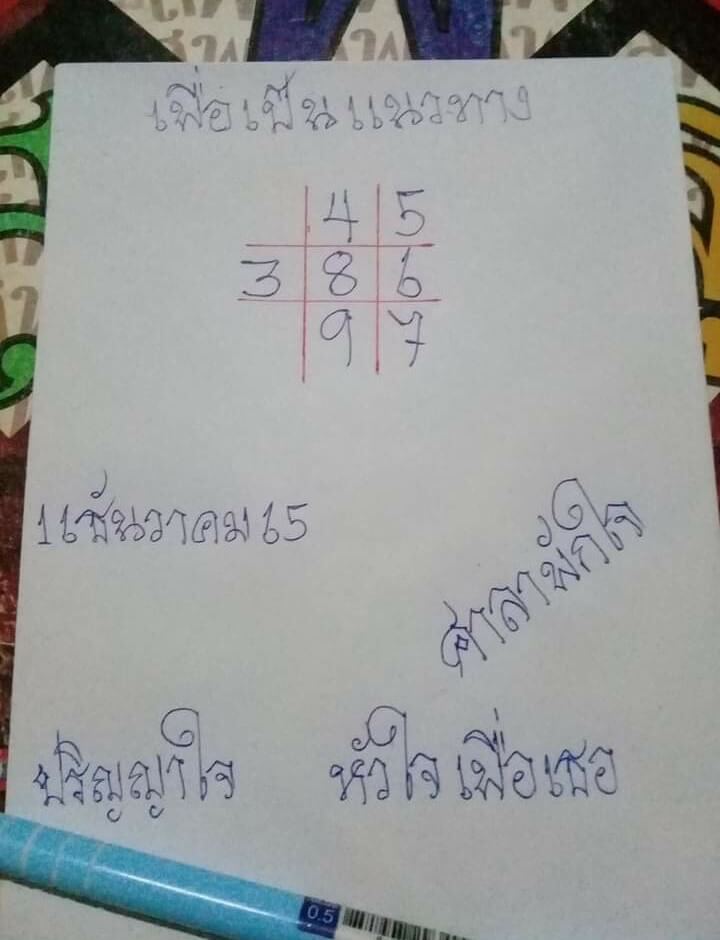 เพื่อเป็นแนวทาง
4 5
3 8 6
9 7
1 เชันวาคม 65
ศาลาพักใจ
ปริญญาใจ หัวใจเพื่อเธอ
0.5